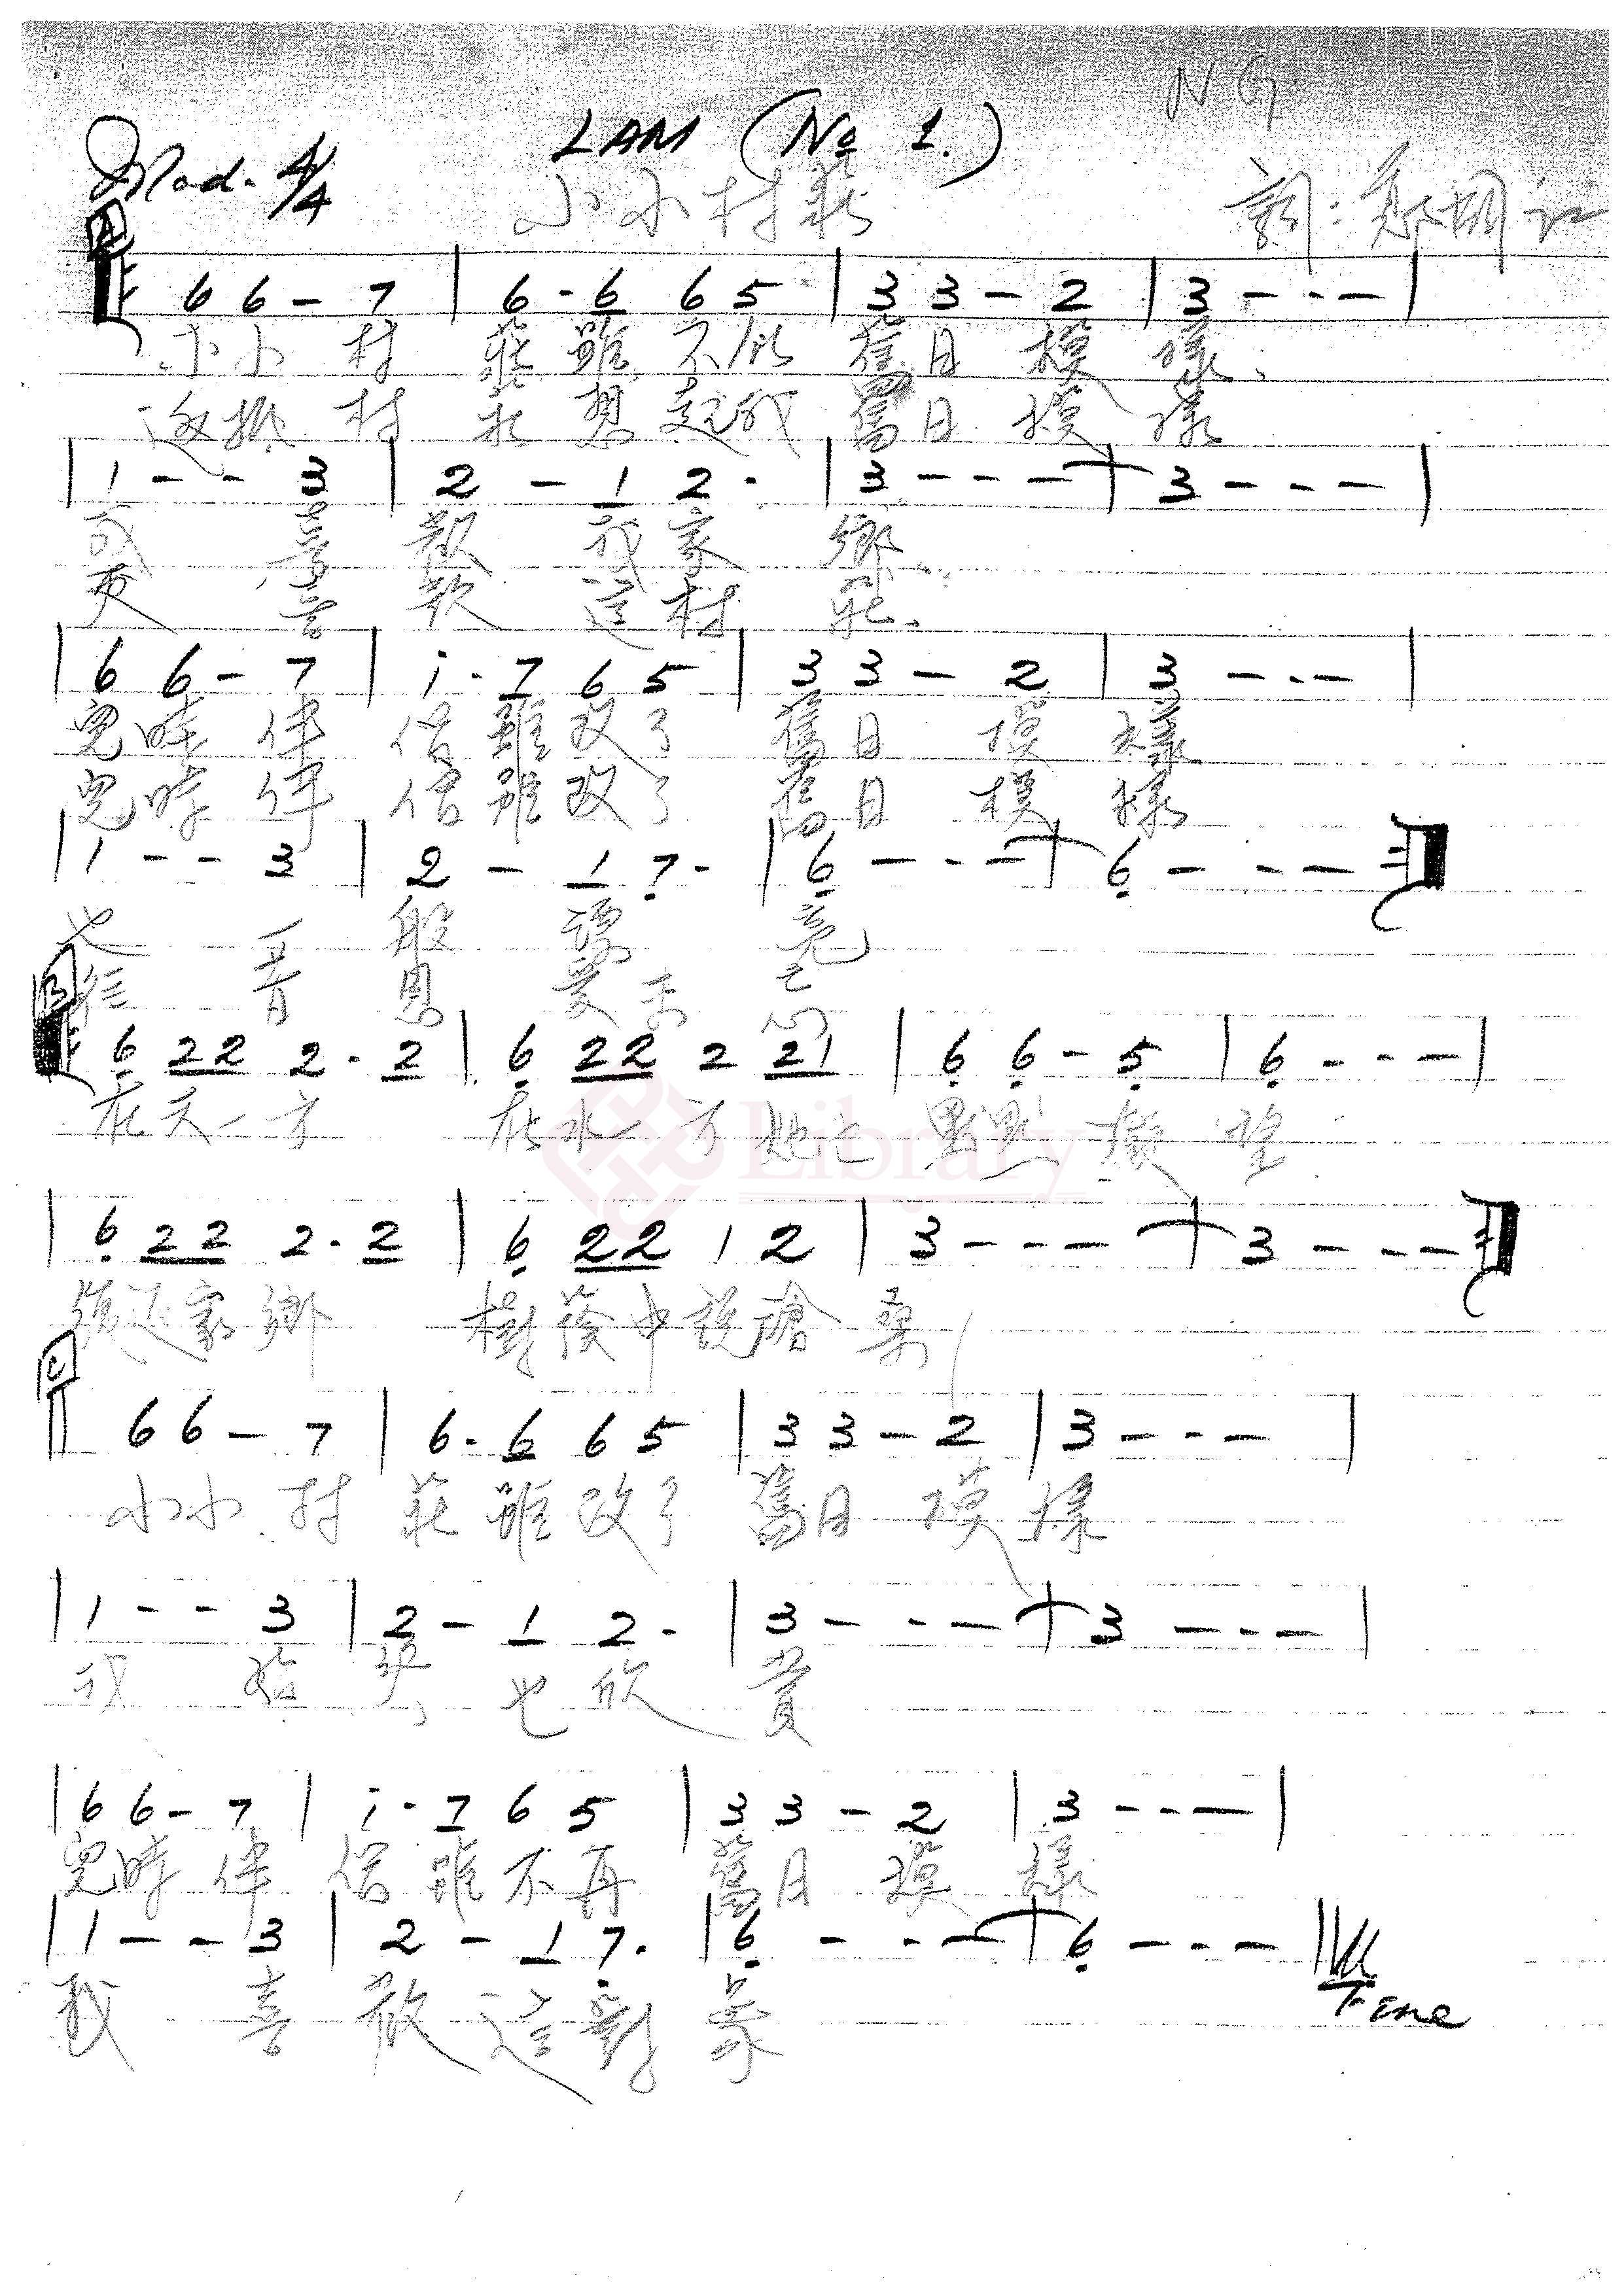 NG
LAM (No 1.)
Mod. 4/4
小小村莊
詞：鄭國江
A
6 6 - 7 | 6 · 6 6 5 | 3 3 - 2 | 3 - - - |
小小村莊雖不似舊日模樣
村莊想起我舊日模樣
| 1 - - 3 | 2 - 1 2 · | 3 - - - | 3 - - - |
我喜歡我家鄉
更喜歡這村莊
| 6 6 - 7 | i · 7 6 5 | 3 3 - 2 | 3 - - - |
兒時伴侶雖改了舊日模樣
兒時伴侶雖改了舊日模樣
| 1 - - 3 | 2 - 1 7 · | 6 - - - | 6 - - -
也一般漂亮
往昔恩愛未忘
B
6 2 2 2 · 2 | 6 2 2 2 2 1 | 6 6 - 5 | 6 - - - |
在天一方 在水一方她也默默凝望
| 6 2 2 2 · 2 | 6 2 2 1 2 | 3 - - - | 3 - - -
家鄉 樹蔭中說滄桑
C
6 6 - 7 | 6 · 6 6 5 | 3 3 - 2 | 3 - - - |
小小村莊雖改了舊日模樣
| 1 - - 3 | 2 - 1 2 · | 3 - - - | 3 - - - |
我始終也欣賞
| 6 6 - 7 | i · 7 6 5 | 3 3 - 2 | 3 - - - |
兒時伴侶雖不再舊日模樣
| 1 - - 3 | 2 - 1 7 · | 6 - - - | 6 - - - ||
我喜歡這對象
Fine
Library